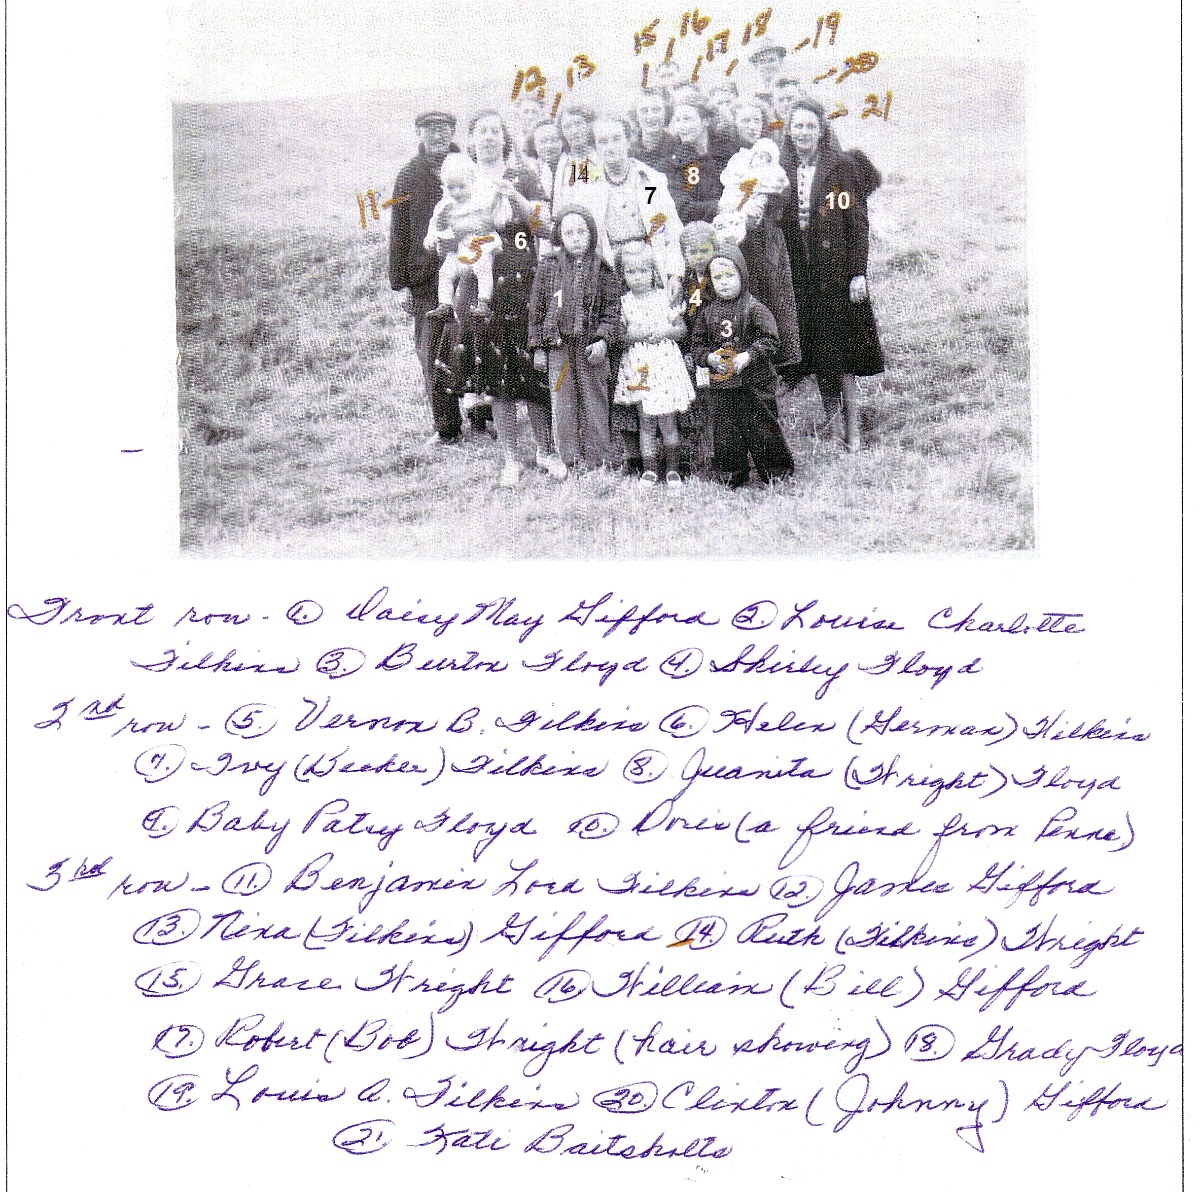 15 16 17 18 19
12 13 20
21
11 14 7 8 9 10
5 6 7
1 4 3
1 2 3
Front row - 1. Daisy May Gifford 2. Louise Charlotte
Filkins 3. Burton Floyd 4. Shirley Floyd
2nd row - 5. Vernon B. Filkins 6. Helen (German) Filkins
7. Ivy (Decker) Filkins 8. Juanita (Wright) Floyd
9. Baby Patsy Floyd 10. Doris (a friend from Penna)
3rd row - 11. Benjamin Lord Filkins 12. James Gifford
13. Nina (Filkins) Gifford 14. Ruth (Filkins) Wright
15. Grace Wright 16. William (Bill) Gifford
17. Robert (Bob) Wright (hair showing) 18. Grady Floyd
19. Louis A. Filkins 20. Clinton (Johnny) Gifford
21. Kati Baitsholts